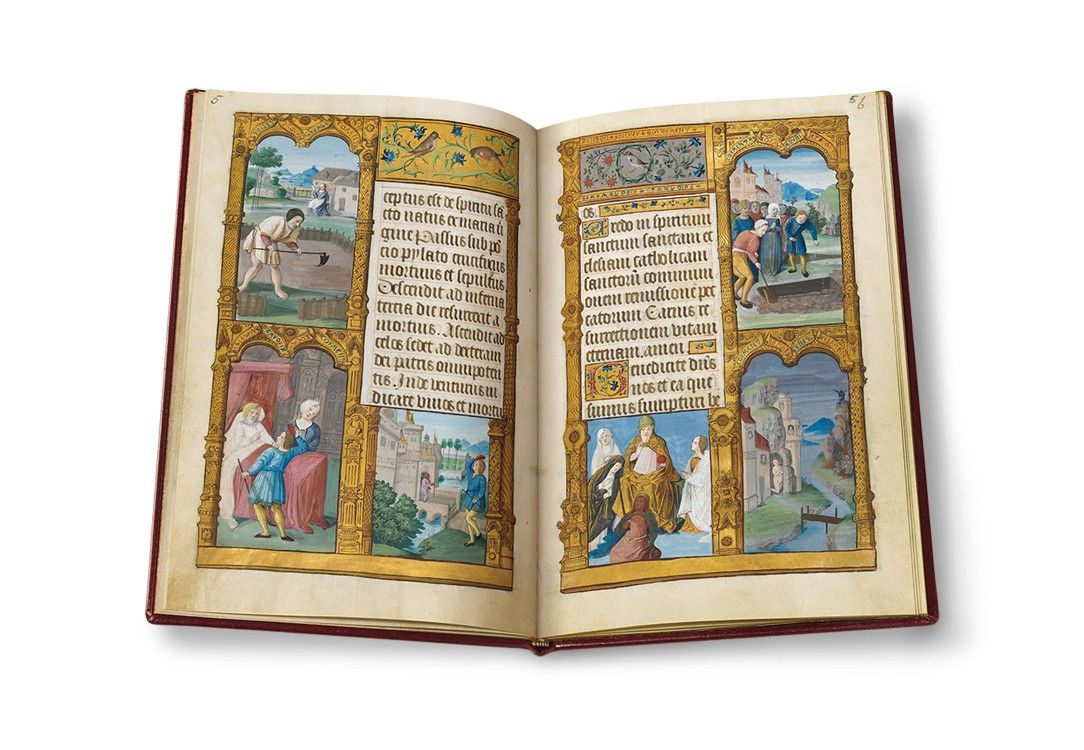 5
ceptus est de spiritu sã
cto natus ex maria ũ
gine Passus sub põ
cio pylato crucifixus
mortuus et sepultus
Descendit ad inferna
tercia die resurrexit a
mortuis. Ascendit ad
celos sedet ad dexteram
dei patris omnipoten
tis. Inde venturus iu
dicare vivos et mortu
56
os.
Credo in spiritum
sanctum sanctam ec
clesiam catholicam
sanctorũ communi
onem remissionẽ pec
catorum Carnis re
surrectionem vitam
eternam. amen
Benedicite dñs
nos et ea que
sumus sumpturi be